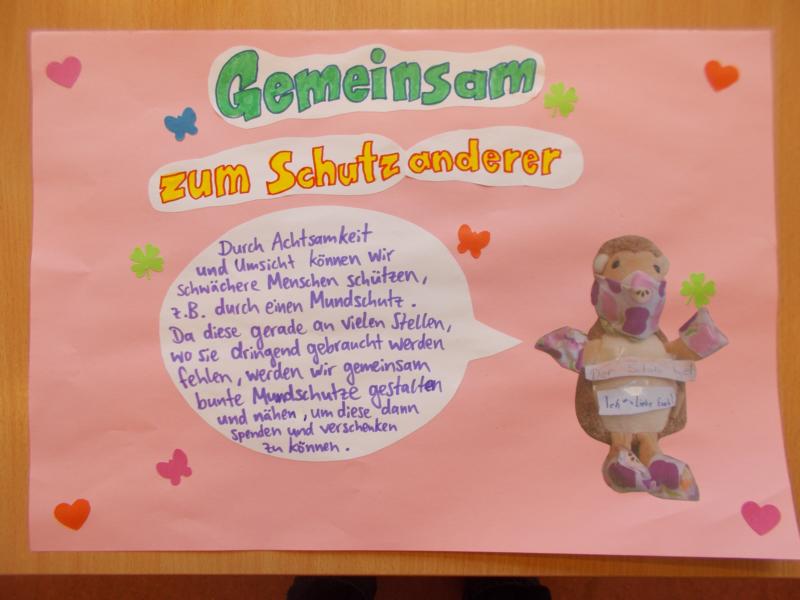 Gemeinsam
zum Schutz anderer
Durch Achtsamkeit
und Umsicht können wir
schwächere Menschen schützen,
z.B. durch einen Mundschutz.
Da diese gerade an vielen Stellen,
wo sie dringend gebraucht werden
fehlen, werden wir gemeinsam
bunte Mundschutze gestalten
und nähen, um diese dann
spenden und verschenken
zu können.
Der
Ich Liebe Euch!